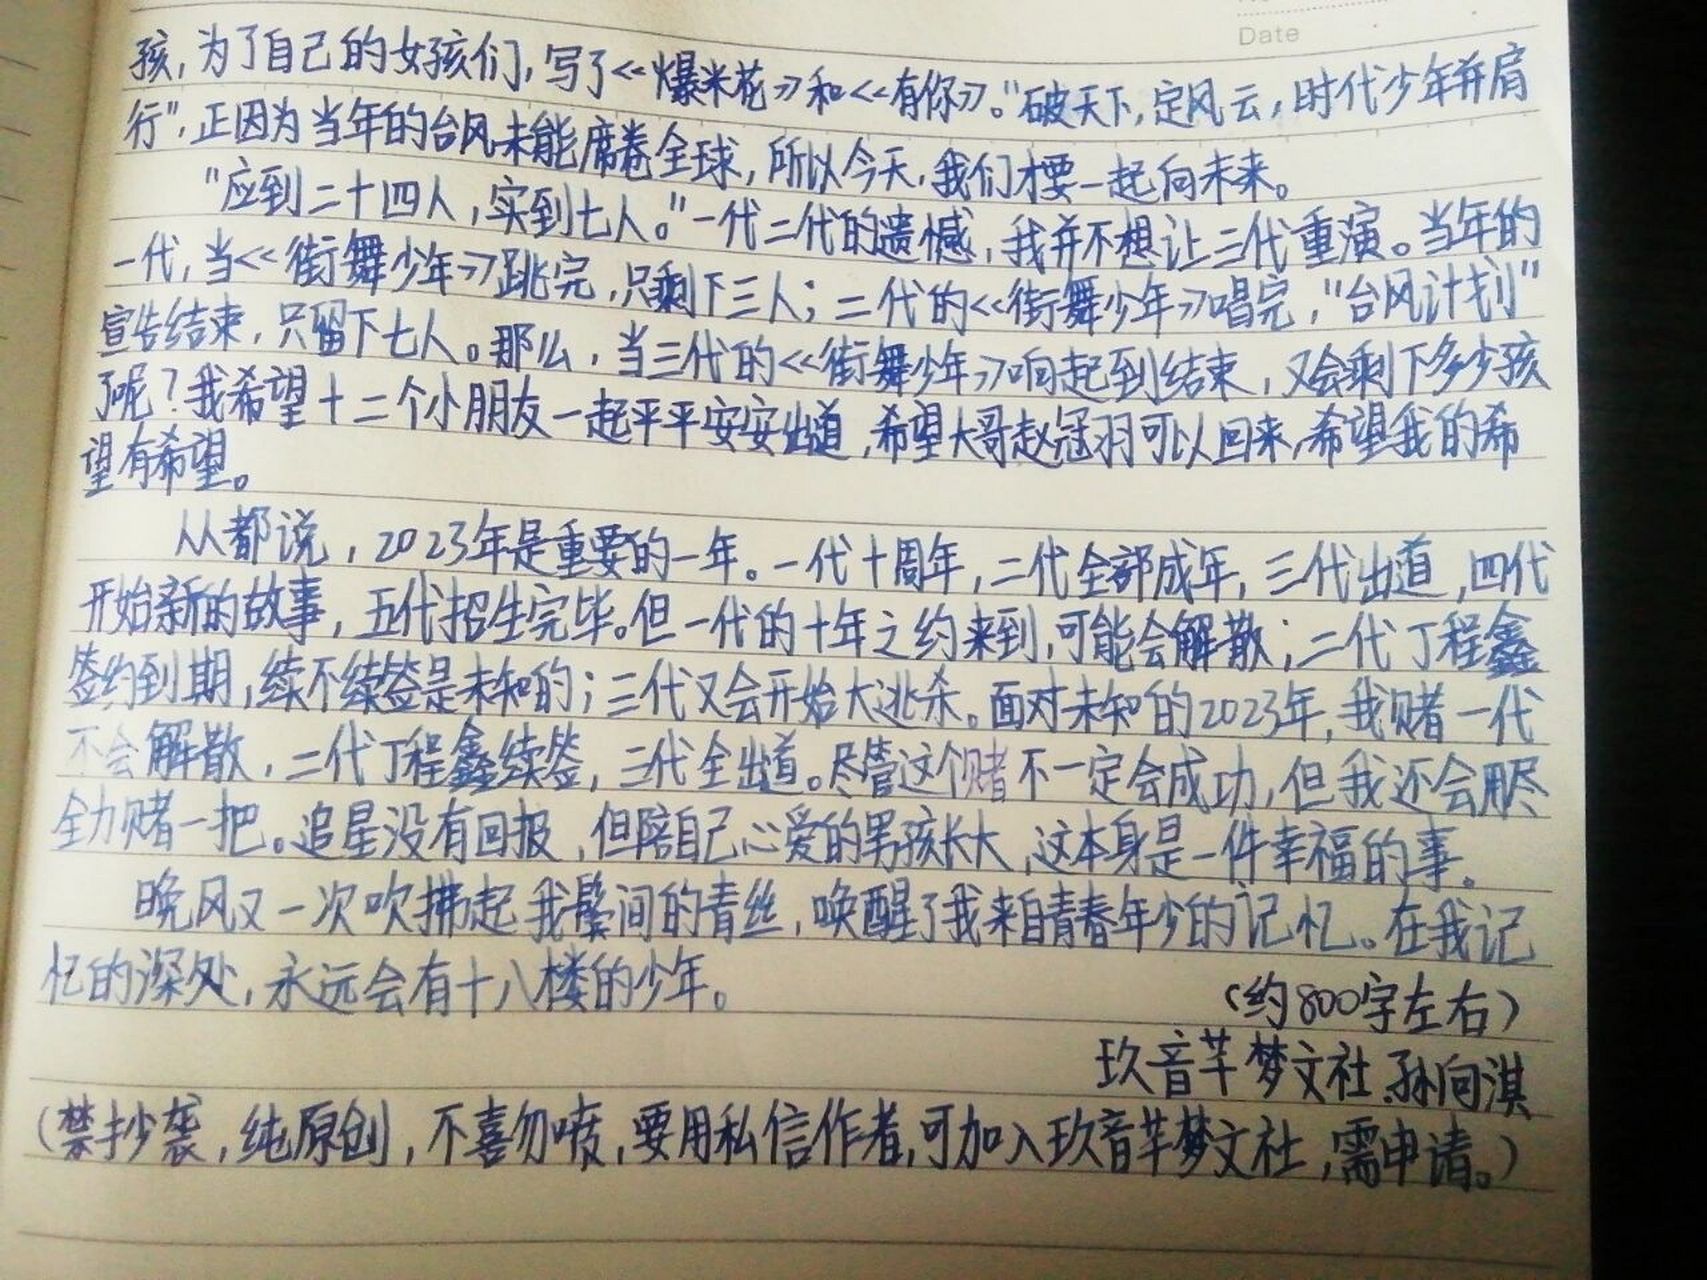 Date
孩,为了自己的女孩们,写了<<爆米花>>和<<有你>>。"破天下,定风云,时代少年并肩
行",正因为当年的台风未能席卷全球,所以今天,我们才要一起向未来。
"应到二十四人,实到七人。"一代二代的遗憾,我并不想让三代重演。当年的
一代,当<<街舞少年>>跳完,只剩下三人;二代的<<街舞少年>>唱完,"台风计划"
宣告结束,只留下七人。那么,当三代的<<街舞少年>>响起到结束,又会剩下多少孩
了呢?我希望十二个小朋友一起平平安安出道,希望大哥赵冠羽可以回来,希望我的希
望有希望。
从都说,2023年是重要的一年。一代十周年,二代全部成年,三代出道,四代
开始新的故事,五代招生完毕。但一代的十年之约来到,可能会解散;二代丁程鑫
签约到期,续不续签是未知的;三代又会开始大逃杀。面对未知的2023年,我赌一代
不会解散,二代丁程鑫续签,三代全出道。尽管这个赌不一定会成功,但我还会用尽
全力赌一把。追星没有回报,但陪自己心爱的男孩长大,这本身是一件幸福的事。
晚风又一次吹拂起我鬓间的青丝,唤醒了我来自青春年少的记忆。在我记
忆的深处,永远会有十八楼的少年。
(约800字左右)
玖音芊梦文社.孙向淇
(禁抄袭,纯原创,不喜勿喷,要用私信作者,可加入玖音芊梦文社,需申请。)